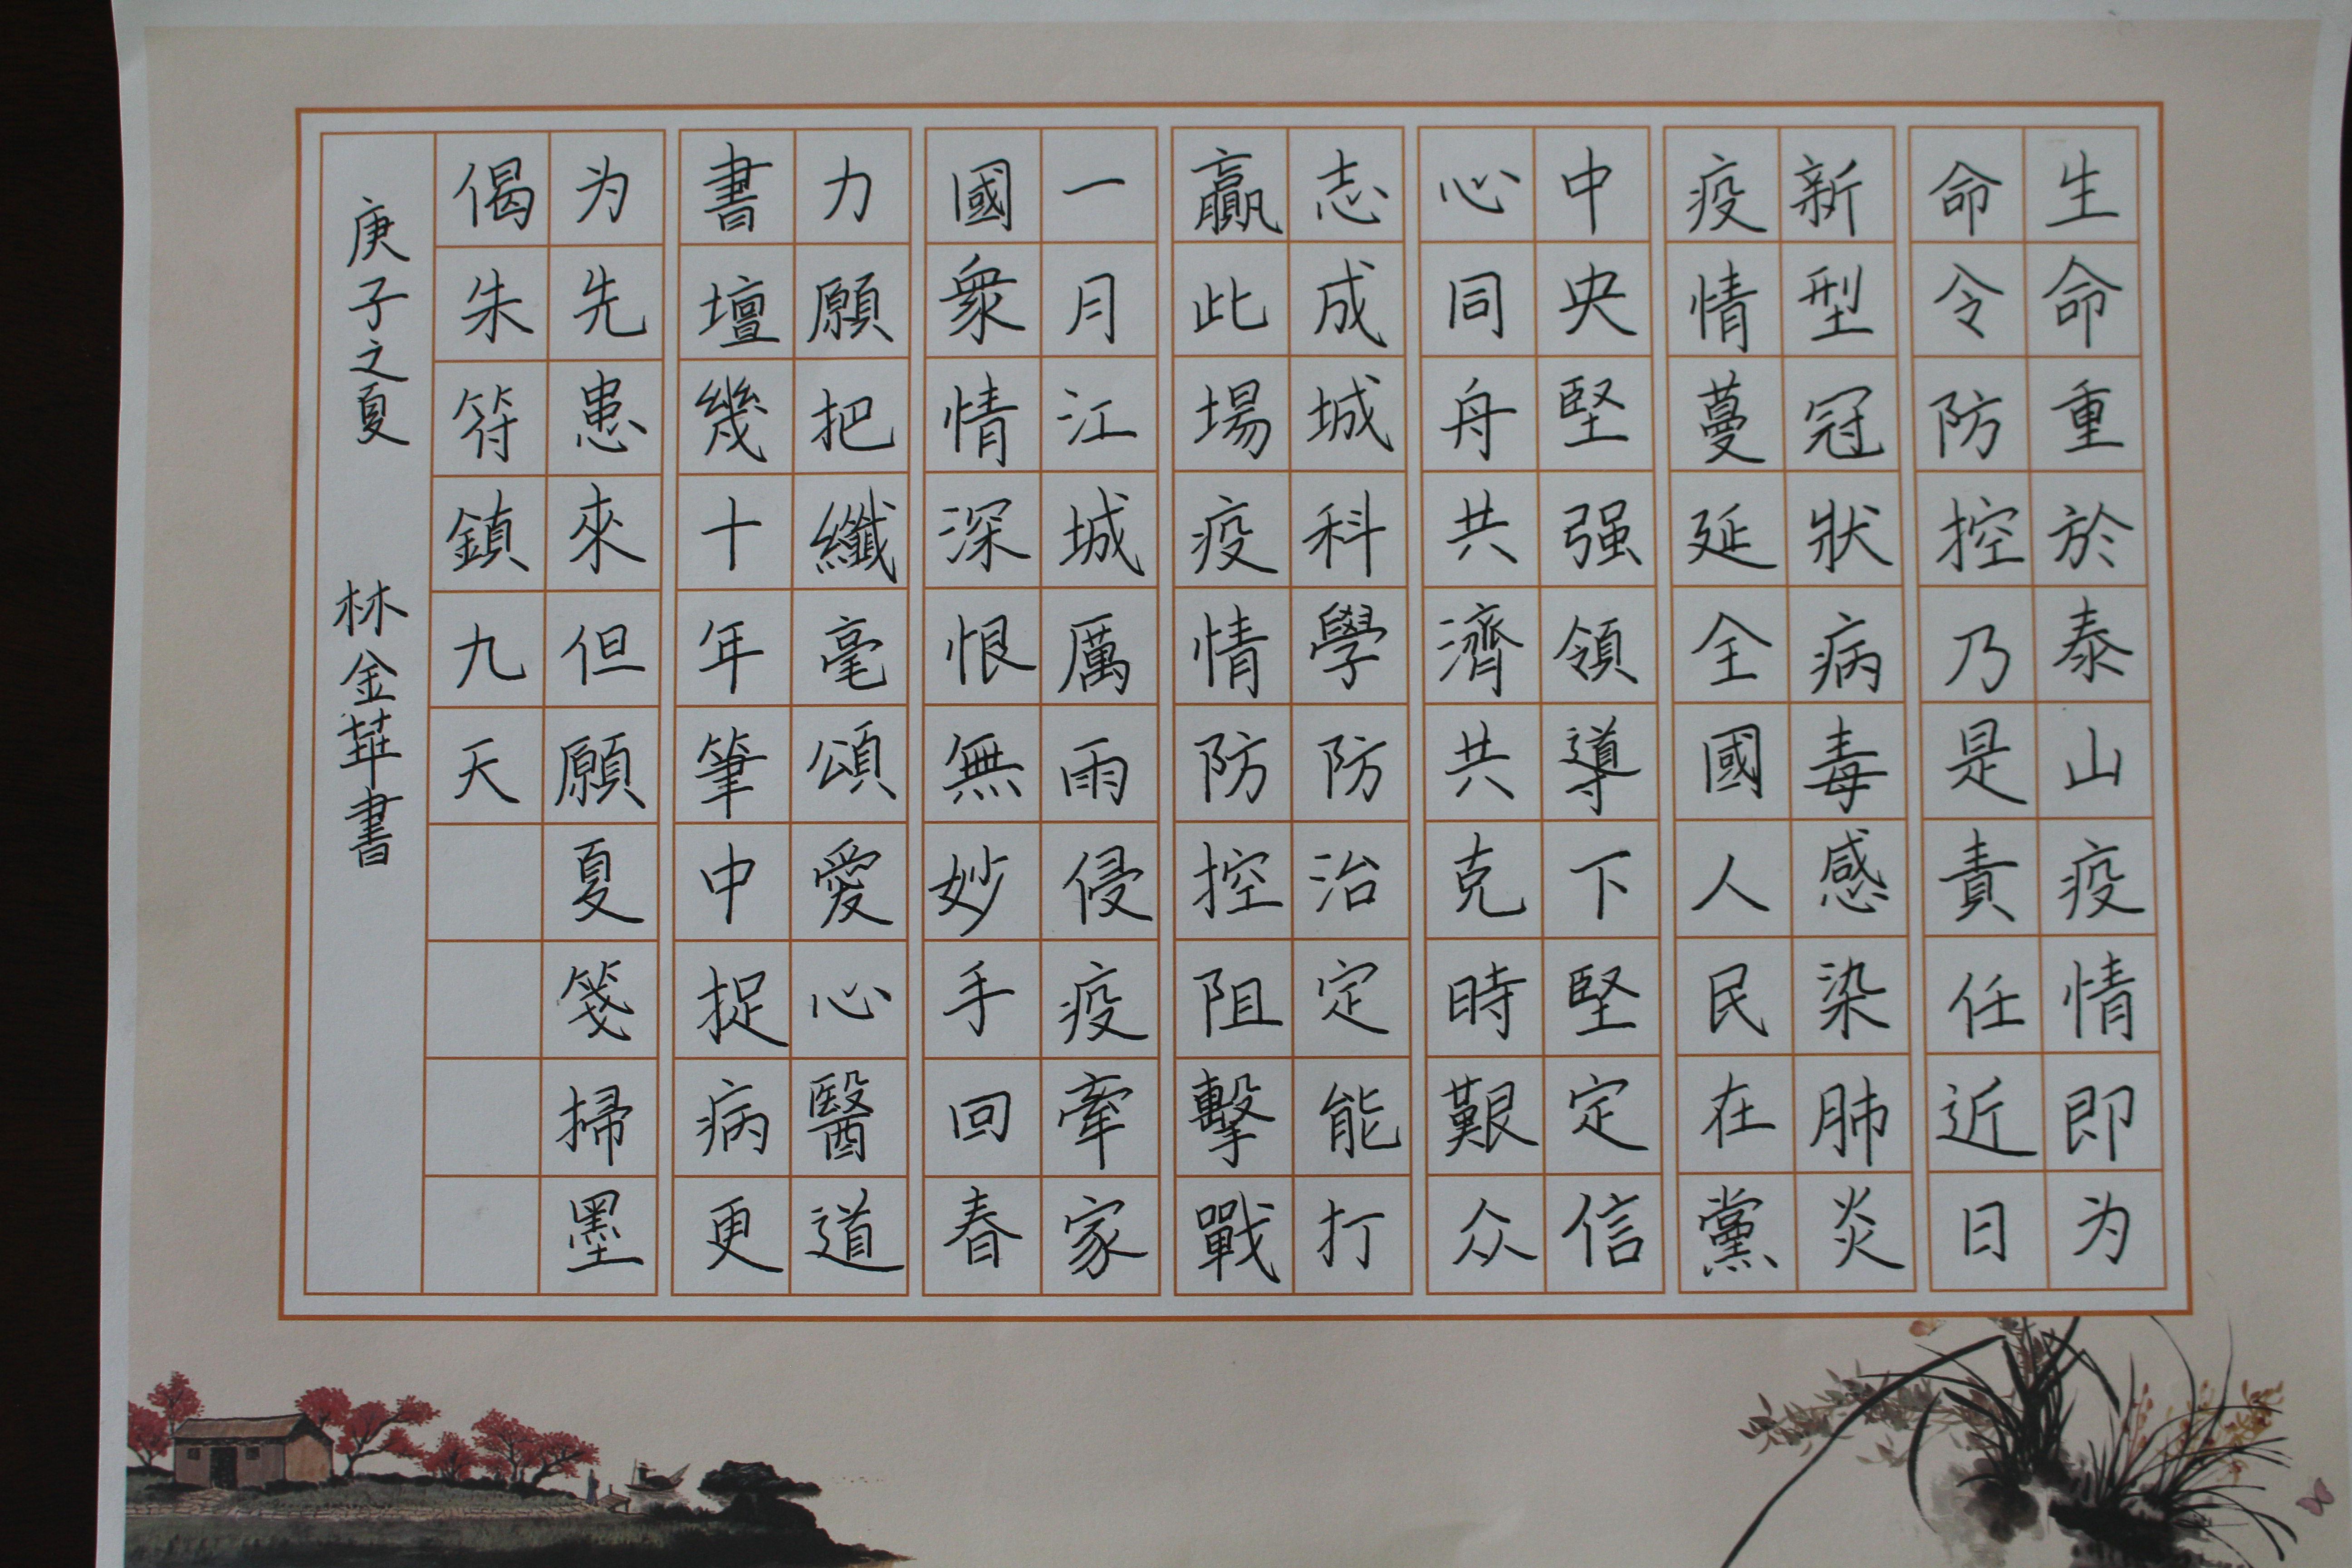 生命重於泰山疫情即为
命令防控乃是責任近日
新型冠狀病毒感染肺炎
疫情蔓延全國人民在黨
中央堅强領導下堅定信
心同舟共濟共克時艱众
志成城科學防治定能打
贏此場疫情防控阻擊戰
一月江城厲雨侵疫牽家
國衆情深恨無妙手回春
力願把纖毫頌愛心醫道
書壇幾十年筆中捉病更
为先患來但願夏箋掃墨
偈朱符鎮九天
庚子之夏 林金華書